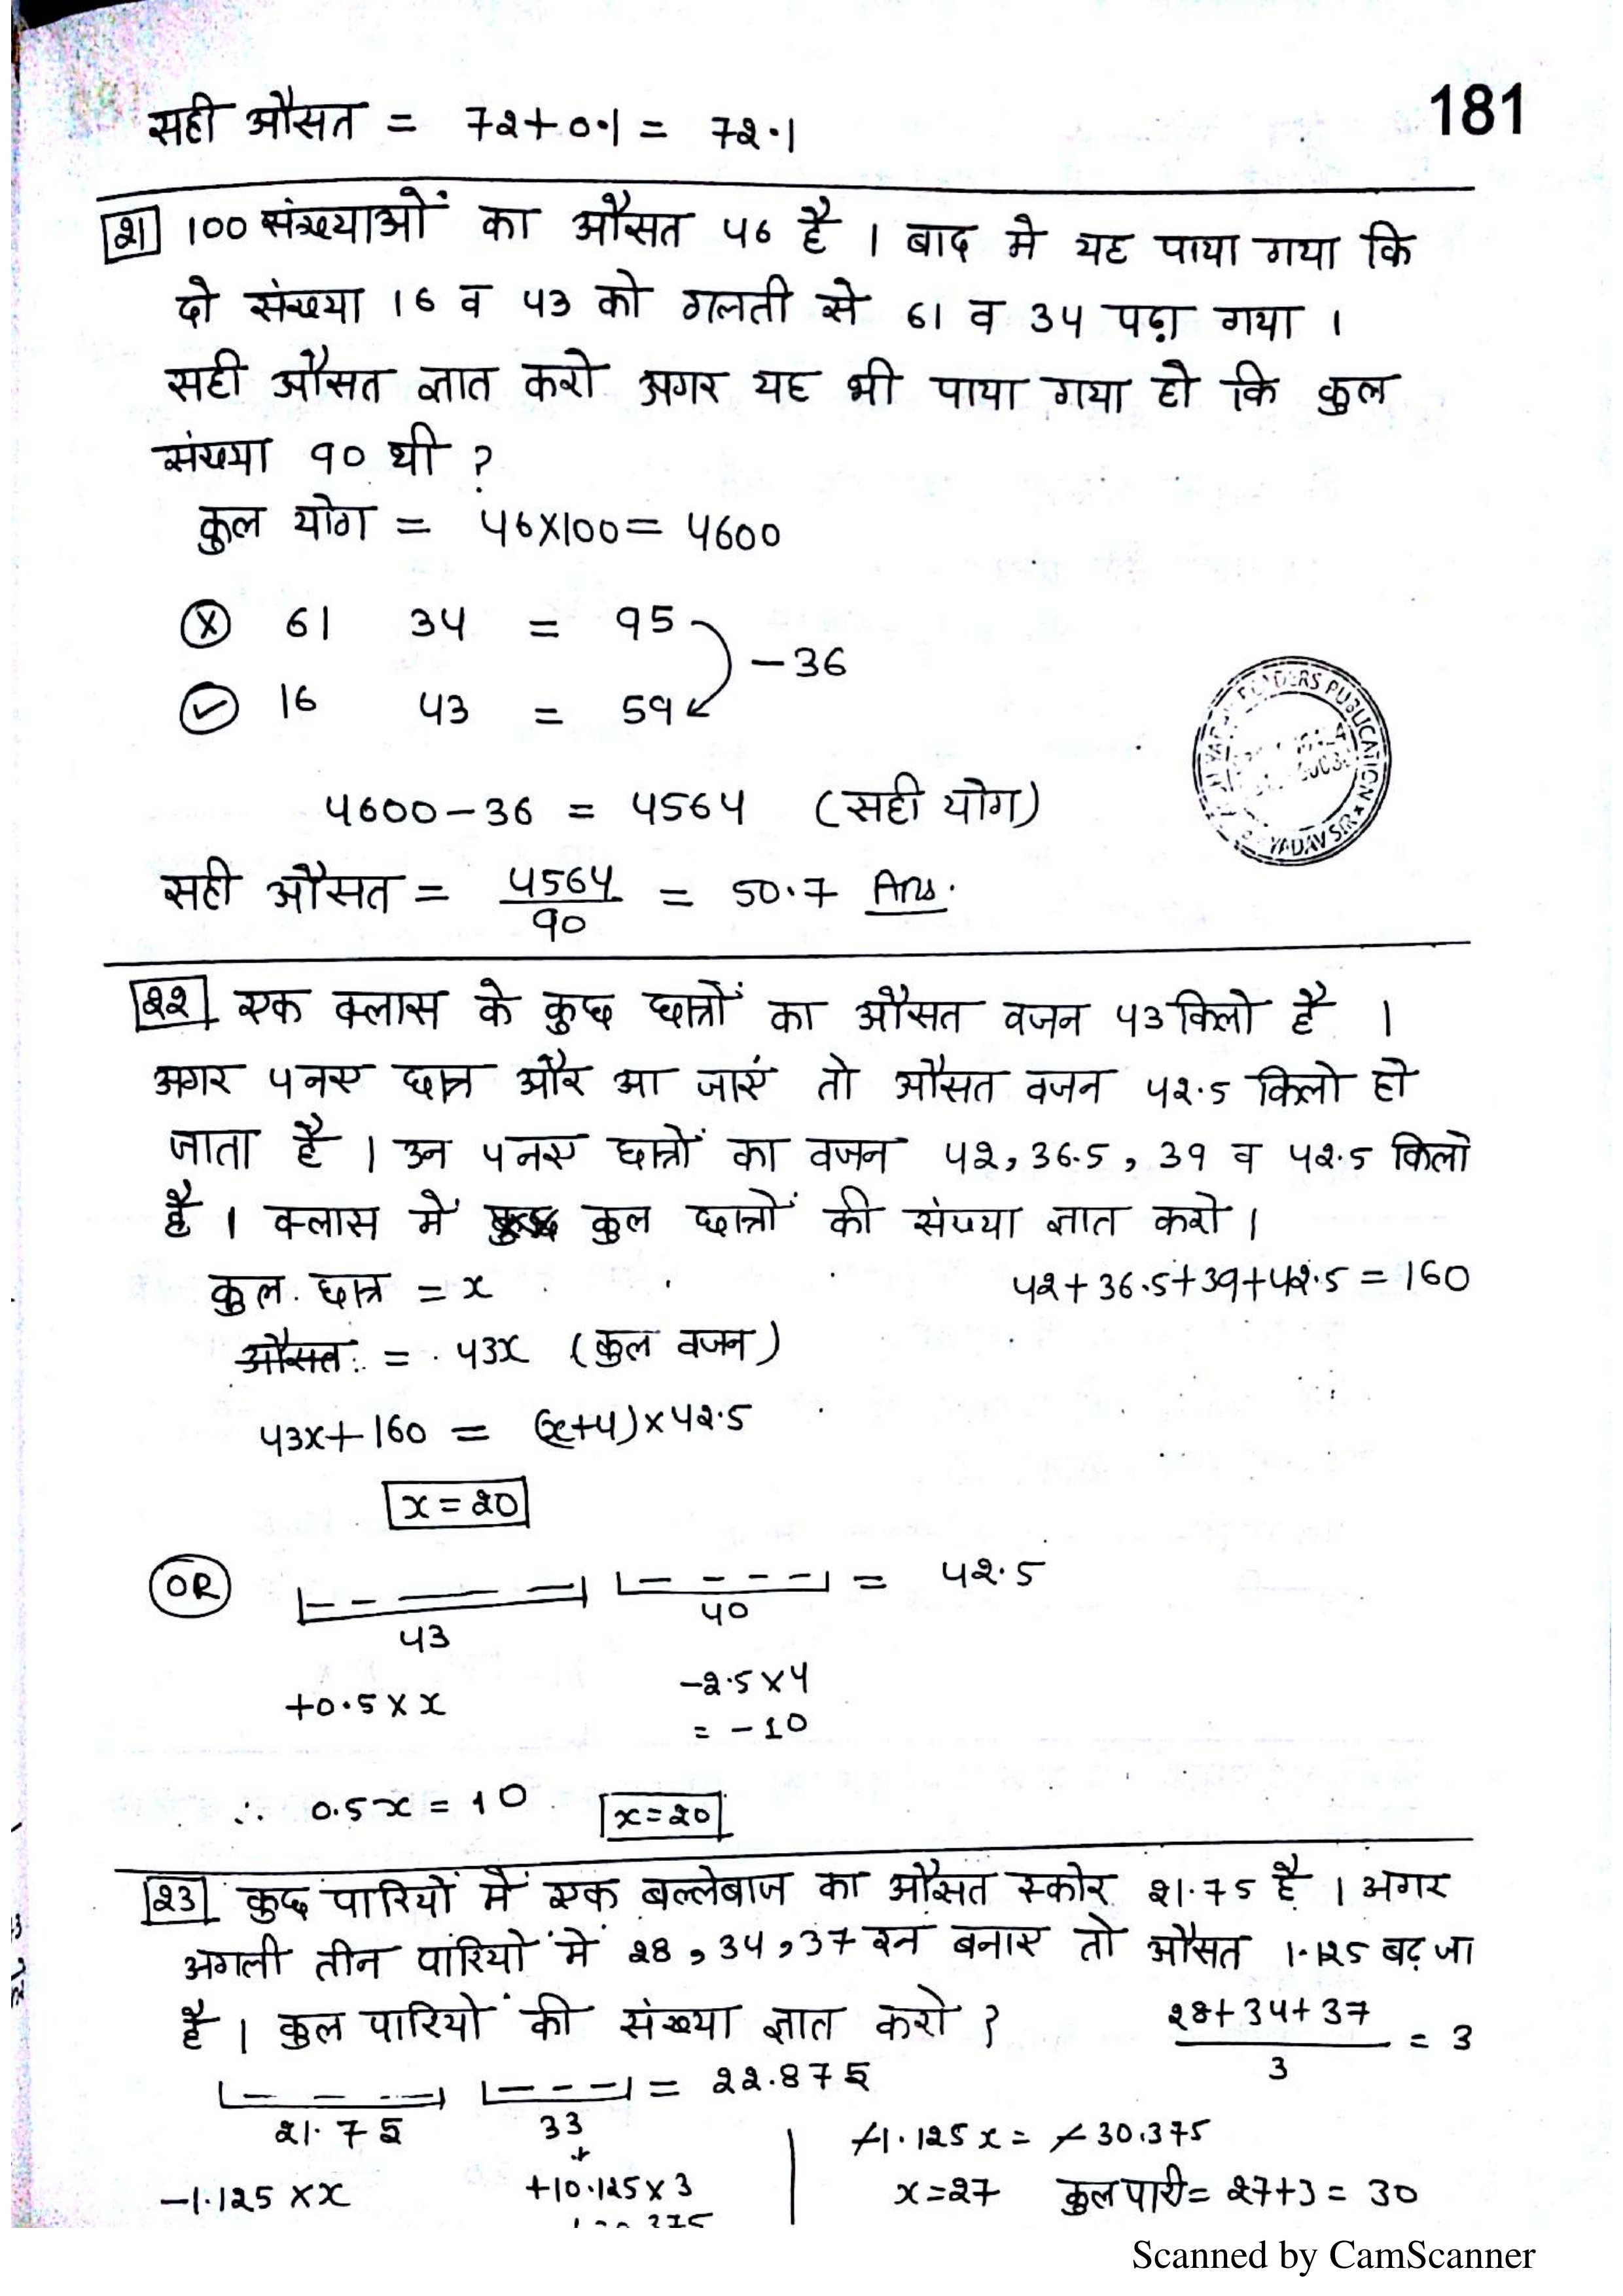 181
सही औसत = 72+0.1 = 72.1
21 100 संख्याओं का औसत 46 है । बाद मे यह पाया गया कि
दो संख्या 16 व 43 को गलती से 61 व 34 पढ़ा गया ।
सही औसत ज्ञात करो अगर यह भी पाया गया हो कि कुल
संख्या 90 थी ?
कुल योग = 46×100 = 4600
ⓧ 61 34 = 95
-36
✓ 16 43 = 59
4600-36 = 4564 (सही योग)
सही औसत = 4564/90 = 50.7 Ans.
PUBLICATION
YADAV SIR
22 एक क्लास के कुछ छात्रों का औसत वजन 43 किलो है ।
अगर 4 नए छात्र और आ जाएं तो औसत वजन 42.5 किलो हो
जाता है । उन 4 नए छात्रों का वजन 42, 36.5, 39 व 42.5 किलो
है । क्लास में कुल छात्रों की संख्या ज्ञात करो ।
कुल छात्र = x 42+36.5+39+42.5 = 160
औसत = 43x (कुल वजन)
43x+160 = (x+4)×42.5
x=20
OR = 42.5
43 40
+0.5×x -2.5×4
= -10
∴ 0.5x = 10 x=20
23 कुछ पारियों में एक बल्लेबाज का औसत स्कोर 21.75 है । अगर
अगली तीन पारियों में 28, 34, 37 रन बनाए तो औसत 1.125 बढ़ जा
है । कुल पारियों की संख्या ज्ञात करो ? 28+34+37/3 = 3
= 22.875
21.75 33
-1.125 x = -30.375
-1.125 ×x +10.125×3 x=27 कुल पारी = 27+3 = 30
Scanned by CamScanner